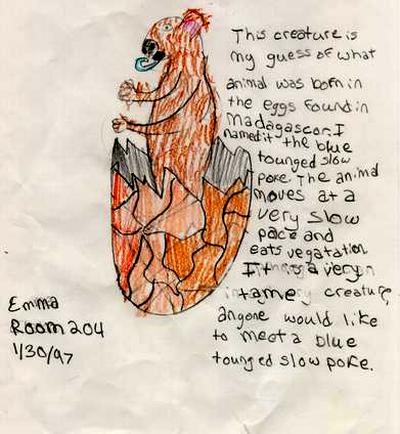 This creature is
my guess of what
animal was born in
the eggs found in
Madagascar. I
named it the blue
tounged slow
poke. The animal
moves at a
very slow
pace and
eats vegatation
It is a very
tame creature,
angone would like
to meet a blue
tounged slow poke.
Emma
Room 204
1/30/97